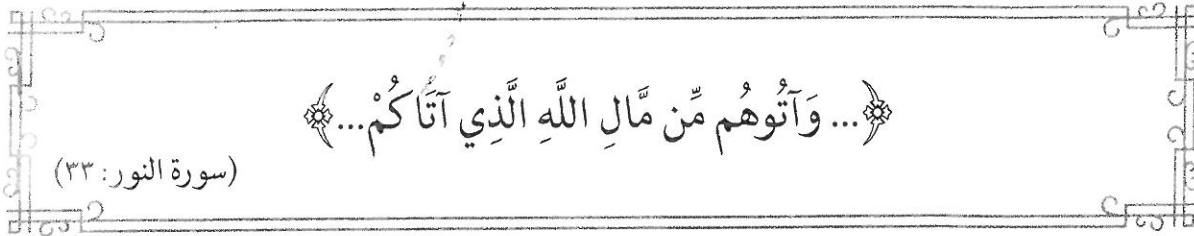 ﴿... وَآتُوهُم مِّن مَّالِ اللَّهِ الَّذِي آتَاكُمْ...﴾
(سورة النور: ٣٣)